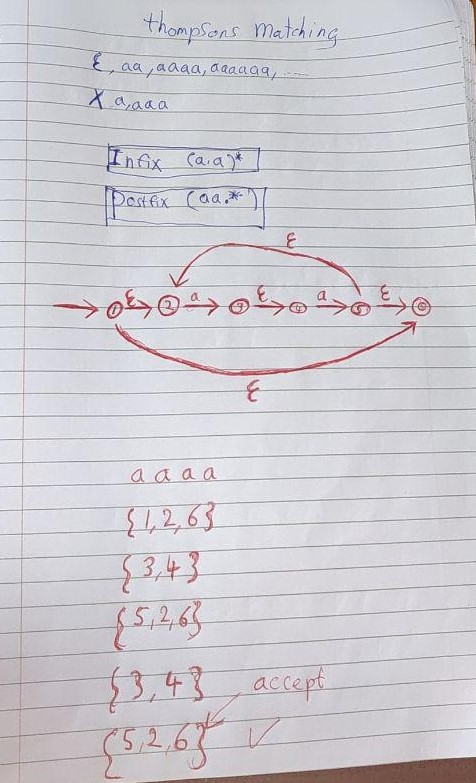 thompsons Matching
ε, aa, aaaa, aaaaaa, ....
X a, aaa
Infix (a.a)*
Postfix (aa.*)
ε
1 ε 2 a 3 ε 4 a 5 ε 6
ε
a a a a
{1,2,6}
{3,4}
{5,2,6}
{3,4} accept
{5,2,6} ✓